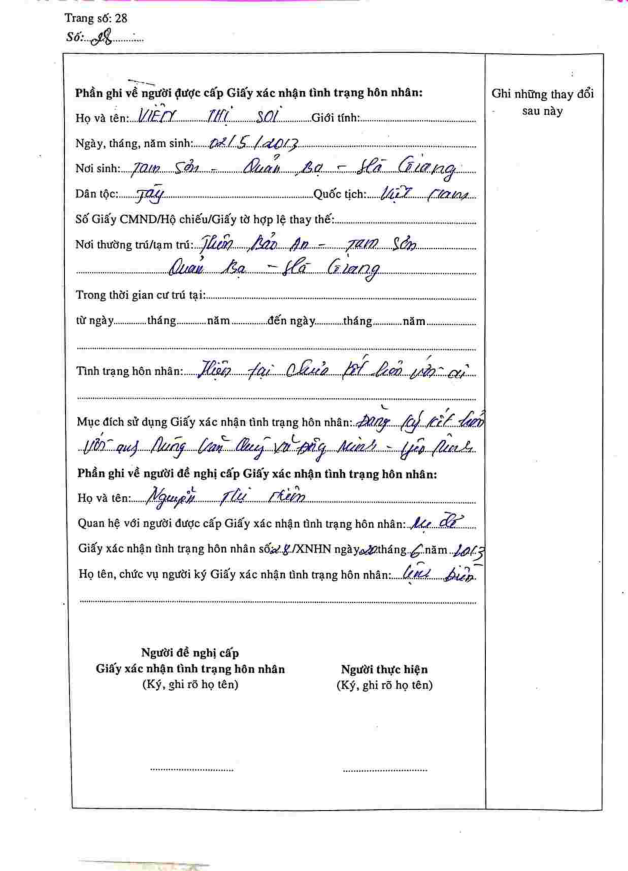 Trang số: 28
Số: 28
Phần ghi về người được cấp Giấy xác nhận tình trạng hôn nhân:
Ghi những thay đổi
sau này
Họ và tên: VIÊN THỊ SOI Giới tính:
Ngày, tháng, năm sinh: 02/5/2013
Nơi sinh: Tam Sơn - Quản Bạ - Hà Giang
Dân tộc: Tày Quốc tịch: Việt Nam
Số Giấy CMND/Hộ chiếu/Giấy tờ hợp lệ thay thế:
Nơi thường trú/tạm trú: Thôn Bảo An - Tam Sơn
Quản Bạ - Hà Giang
Trong thời gian cư trú tại:
từ ngày tháng năm đến ngày tháng năm
Tình trạng hôn nhân: Hiện tại chưa kết hôn với ai
Mục đích sử dụng Giấy xác nhận tình trạng hôn nhân: Đăng ký kết hôn
với anh Nùng Văn Minh - Yên Minh
Phần ghi về người đề nghị cấp Giấy xác nhận tình trạng hôn nhân:
Họ và tên: Nguyễn Thị
Quan hệ với người được cấp Giấy xác nhận tình trạng hôn nhân: Mẹ đẻ
Giấy xác nhận tình trạng hôn nhân số 28/XNHN ngày 20 tháng 6 năm 2013
Họ tên, chức vụ người ký Giấy xác nhận tình trạng hôn nhân:
Người đề nghị cấp
Giấy xác nhận tình trạng hôn nhân
(Ký, ghi rõ họ tên)
Người thực hiện
(Ký, ghi rõ họ tên)